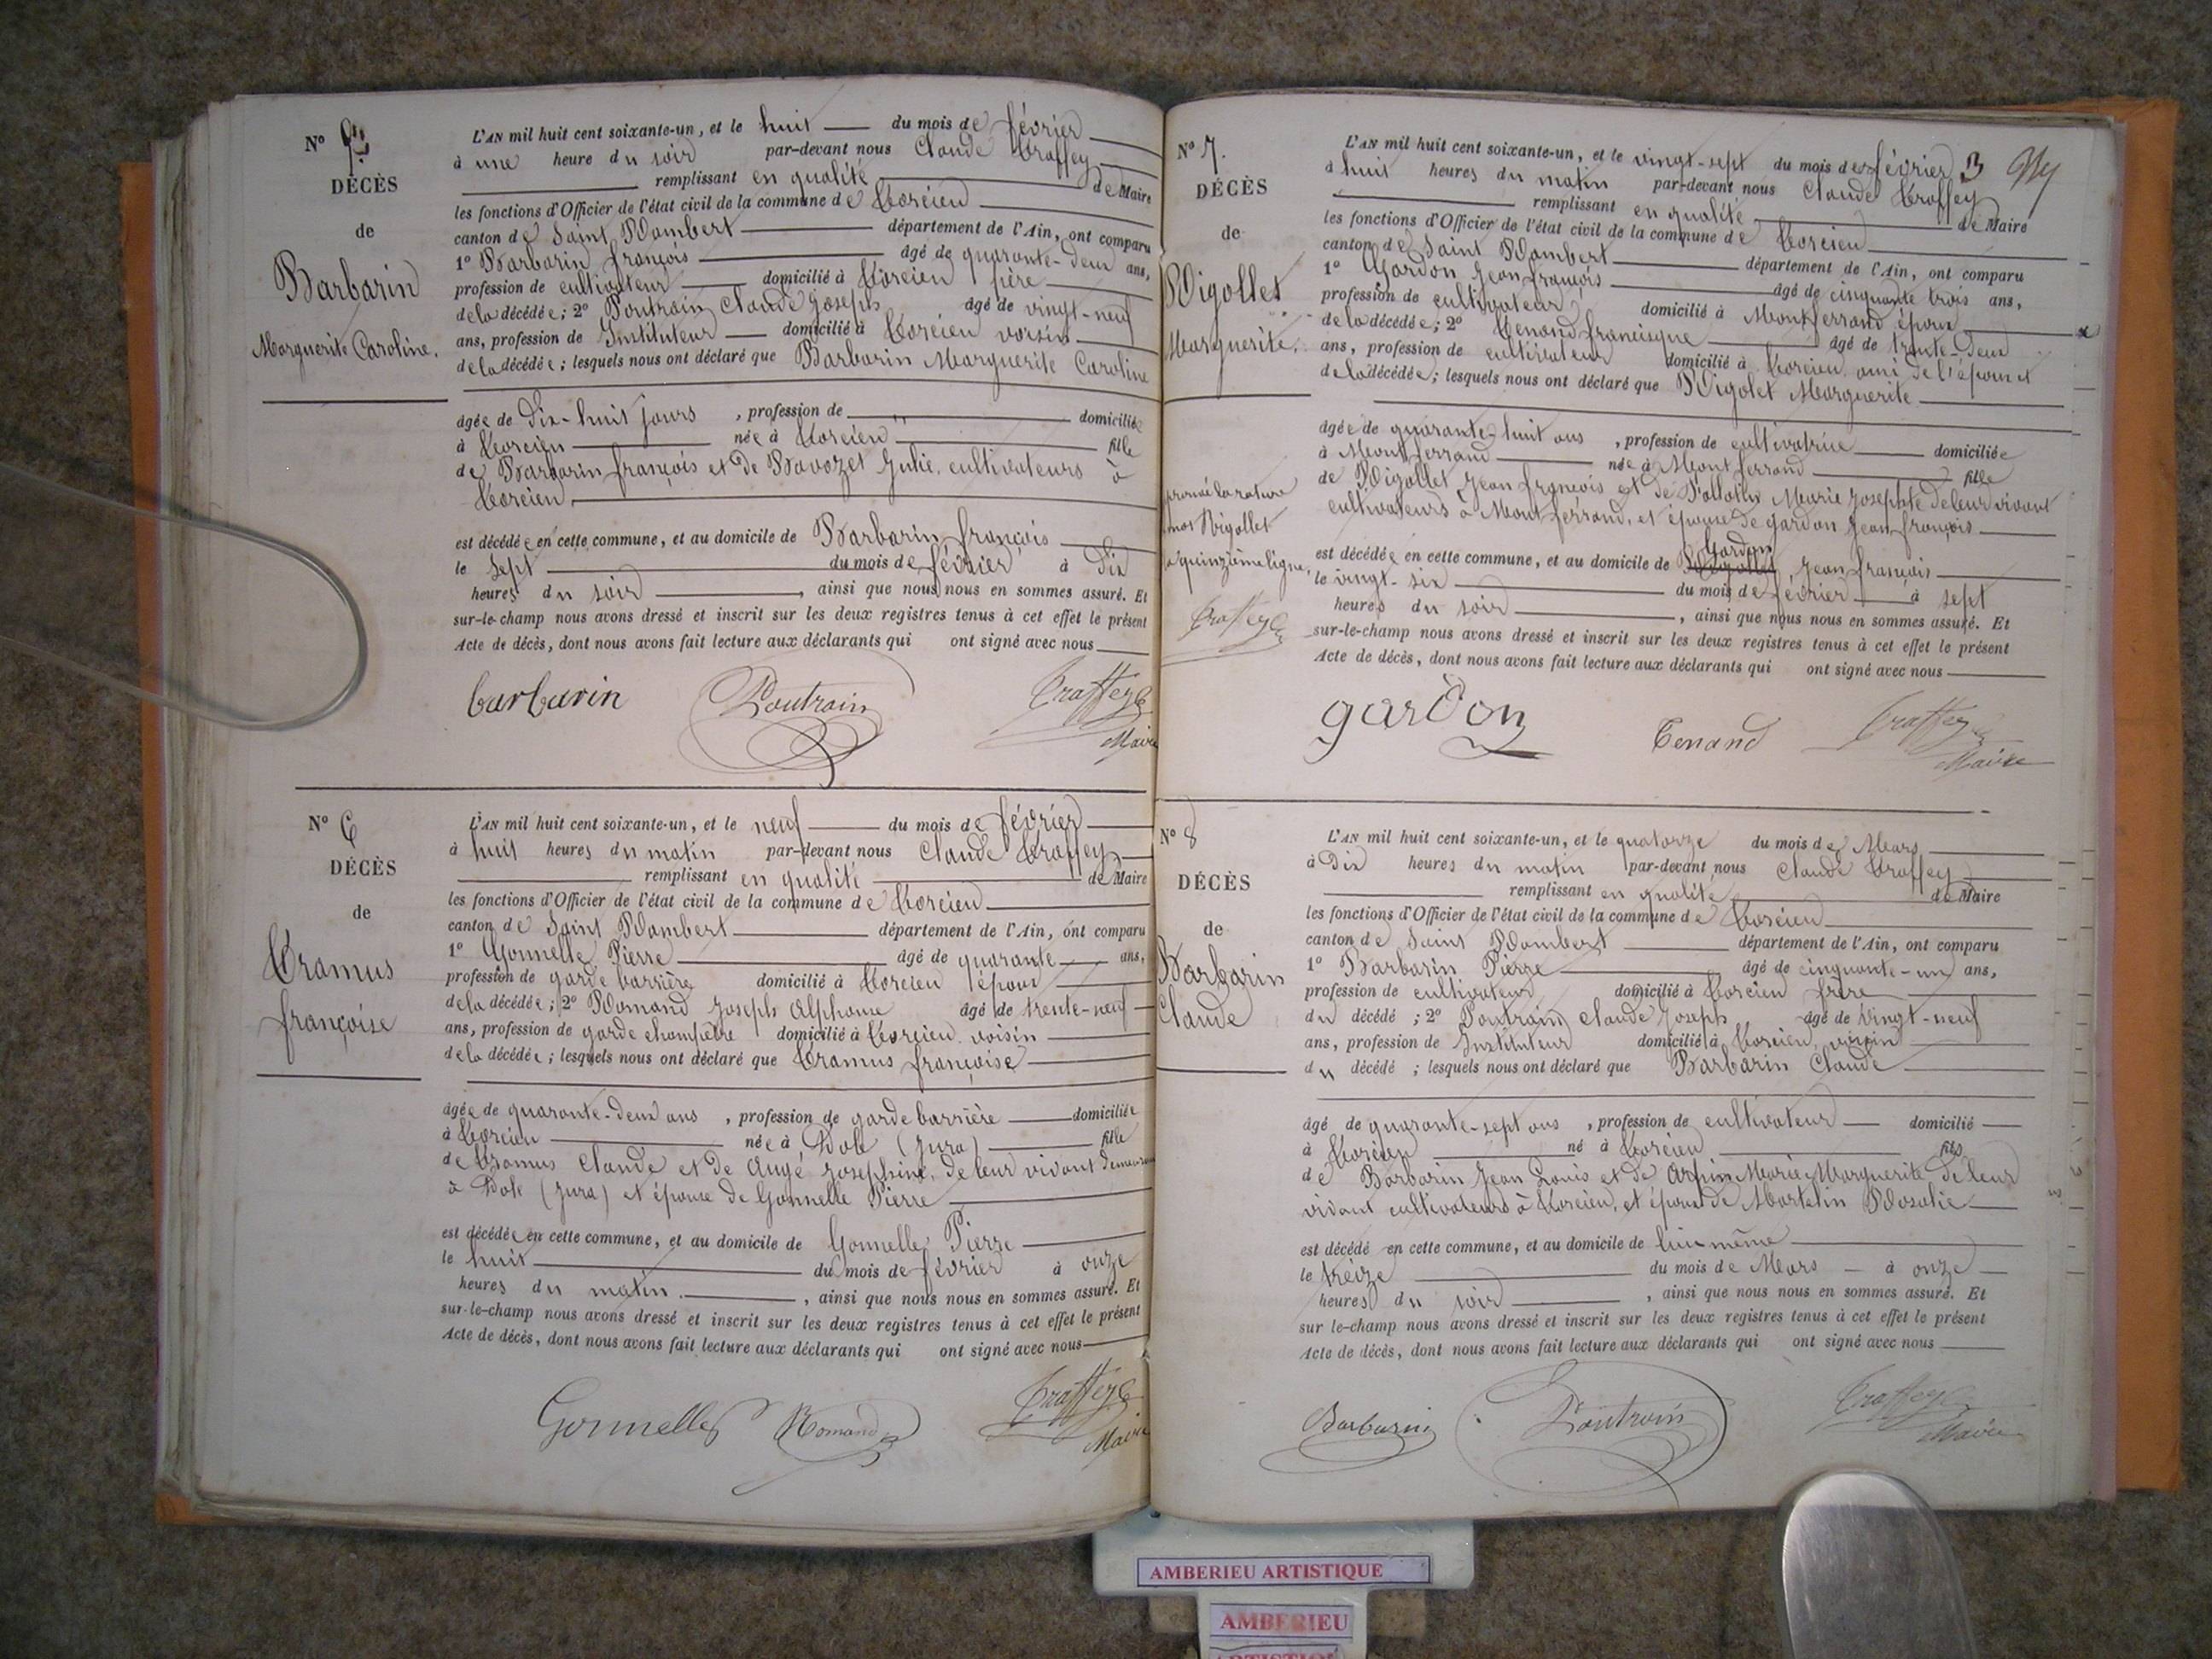 N° 5
DÉCÈS
de
Barbarin
Marguerite Caroline.
L'AN mil huit cent soixante-un, et le huit du mois de février
à une heure du soir par-devant nous Claude Traffey
remplissant en qualité de Maire
les fonctions d'Officier de l'état civil de la commune de Torcieu
canton de Saint Rambert département de l'Ain, ont comparu
1° Barbarin françois âgé de quarante-deux ans,
profession de cultivateur domicilié à Torcieu père
de la décédée; 2° Poutrain Claude Joseph âgé de vingt-neuf
ans, profession de Instituteur domicilié à Torcieu voisin
de la décédée; lesquels nous ont déclaré que Barbarin Marguerite Caroline
âgée de dix-huit jours, profession de domiciliée
à Torcieu née à Torcieu fille
de Barbarin françois et de Bavozet Julie, cultivateurs à
Torcieu
est décédée en cette commune, et au domicile de Barbarin françois
le sept du mois de février à dix
heures du soir, ainsi que nous nous en sommes assuré. Et
sur-le-champ nous avons dressé et inscrit sur les deux registres tenus à cet effet le présent
Acte de décès, dont nous avons fait lecture aux déclarants qui ont signé avec nous
barbarin Poutrain Traffey
Maire
N° 6
DÉCÈS
de
Tramus
françoise
L'AN mil huit cent soixante-un, et le neuf du mois de février
à huit heures du matin par-devant nous Claude Traffey
remplissant en qualité de Maire
les fonctions d'Officier de l'état civil de la commune de Torcieu
canton de Saint Rambert département de l'Ain, ont comparu
1° Gonnelle Pierre âgé de quarante ans,
profession de garde barrière domicilié à Torcieu époux
de la décédée; 2° Romand Joseph Alphonse âgé de trente-neuf
ans, profession de garde champêtre domicilié à Torcieu voisin
de la décédée; lesquels nous ont déclaré que Tramus françoise
âgée de quarante-deux ans, profession de garde barrière domiciliée
à Torcieu née à Dole (Jura) fille
de Tramus Claude et de Augé Josephine, de leur vivant demeurant
à Dole (Jura) et épouse de Gonnelle Pierre
est décédée en cette commune, et au domicile de Gonnelle Pierre
le huit du mois de février à onze
heures du matin, ainsi que nous nous en sommes assuré. Et
sur-le-champ nous avons dressé et inscrit sur les deux registres tenus à cet effet le présent
Acte de décès, dont nous avons fait lecture aux déclarants qui ont signé avec nous
Gonnelle Romand Traffey
Maire
N° 7.
DÉCÈS
de
Rigollet
Marguerite.
3
L'AN mil huit cent soixante-un, et le vingt-sept du mois de février
à huit heures du matin par-devant nous Claude Traffey
remplissant en qualité de Maire
les fonctions d'Officier de l'état civil de la commune de Torcieu
canton de Saint Rambert département de l'Ain, ont comparu
1° Gardon Jean françois âgé de cinquante trois ans,
profession de cultivateur domicilié à Montferrand époux
de la décédée; 2° Tenand francisque âgé de trente-deux
ans, profession de cultivateur domicilié à Torcieu ami de l'époux
de la décédée; lesquels nous ont déclaré que Rigolet Marguerite
âgée de quarante-huit ans, profession de cultivatrice domiciliée
à Montferrand née à Montferrand fille
de Rigollet Jean françois et de Marie Josephte de leur vivant
cultivateurs à Montferrand, et épouse de gardon Jean françois
est décédée en cette commune, et au domicile de Gardon Jean françois
le vingt-six du mois de février à sept
heures du soir, ainsi que nous nous en sommes assuré. Et
sur-le-champ nous avons dressé et inscrit sur les deux registres tenus à cet effet le présent
Acte de décès, dont nous avons fait lecture aux déclarants qui ont signé avec nous
la rature
mot Rigollet
quinzième ligne,
Traffey
gardon Tenand Traffey
Maire
N° 8
DÉCÈS
de
Barbarin
Claude
L'AN mil huit cent soixante-un, et le quatorze du mois de Mars
à Dix heures du matin par-devant nous Claude Traffey
remplissant en qualité de Maire
les fonctions d'Officier de l'état civil de la commune de Torcieu
canton de Saint Rambert département de l'Ain, ont comparu
1° Barbarin Pierre âgé de cinquante-un ans,
profession de cultivateur domicilié à Torcieu frère
du décédé; 2° Poutrain Claude Joseph âgé de vingt-neuf
ans, profession de Instituteur domicilié à Torcieu, voisin
du décédé; lesquels nous ont déclaré que Barbarin Claude
âgé de quarante-sept ans, profession de cultivateur domicilié
à Torcieu né à Torcieu fils
de Barbarin Jean Louis et de Arpin Marie Marguerite de leur
vivant cultivateurs à Torcieu, et époux de Martelin Rosalie
est décédé en cette commune, et au domicile de lui-même
le treize du mois de Mars à onze
heures du soir, ainsi que nous nous en sommes assuré. Et
sur le-champ nous avons dressé et inscrit sur les deux registres tenus à cet effet le présent
Acte de décès, dont nous avons fait lecture aux déclarants qui ont signé avec nous
Barbarin Poutrain Traffey
Maire
AMBERIEU ARTISTIQUE
AMBERIEU
ARTISTIQUE